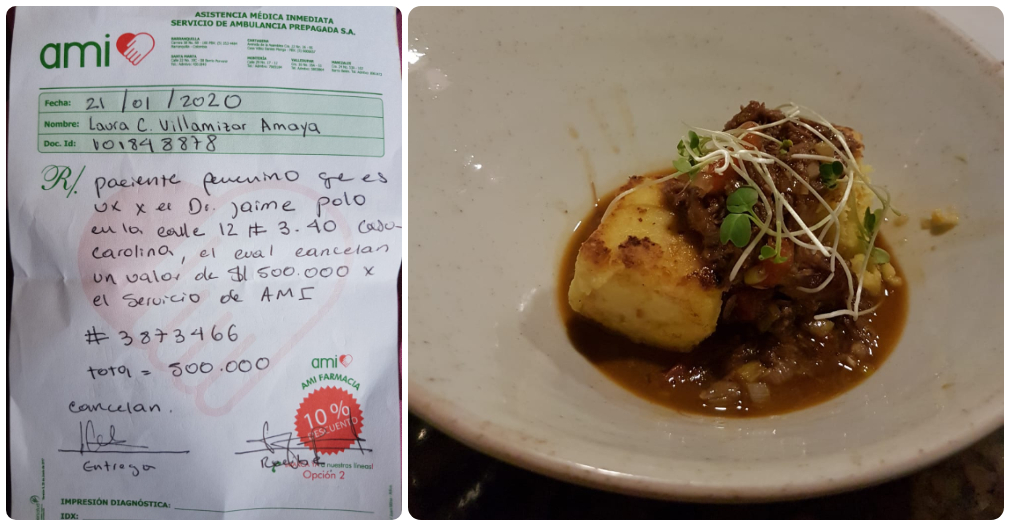 ASISTENCIA MÉDICA INMEDIATA
SERVICIO DE AMBULANCIA PREPAGADA S.A.
ami
BARRANQUILLA
CARTAGENA
SANTA MARTA
MONTERÍA
VALLEDUPAR
SINCELEJO
Fecha: 21/01/2020
Nombre: Laura C. Villamizar Amaya
Doc. Id: 101848878
R/. paciente femenino qe es
vx x el Dr. Jaime polo
en la calle 12 # 3.40 Casa
carolina, el cual cancelan
un valor de $ 500.000 x
el servicio de AMI
# 3873466
total = 500.000
cancelan.
Entrega
Recibe
ami
AMI FARMACIA
10%
DESCUENTO
nuestras líneas!
Opción 2
IMPRESIÓN DIAGNÓSTICA:
IDX: